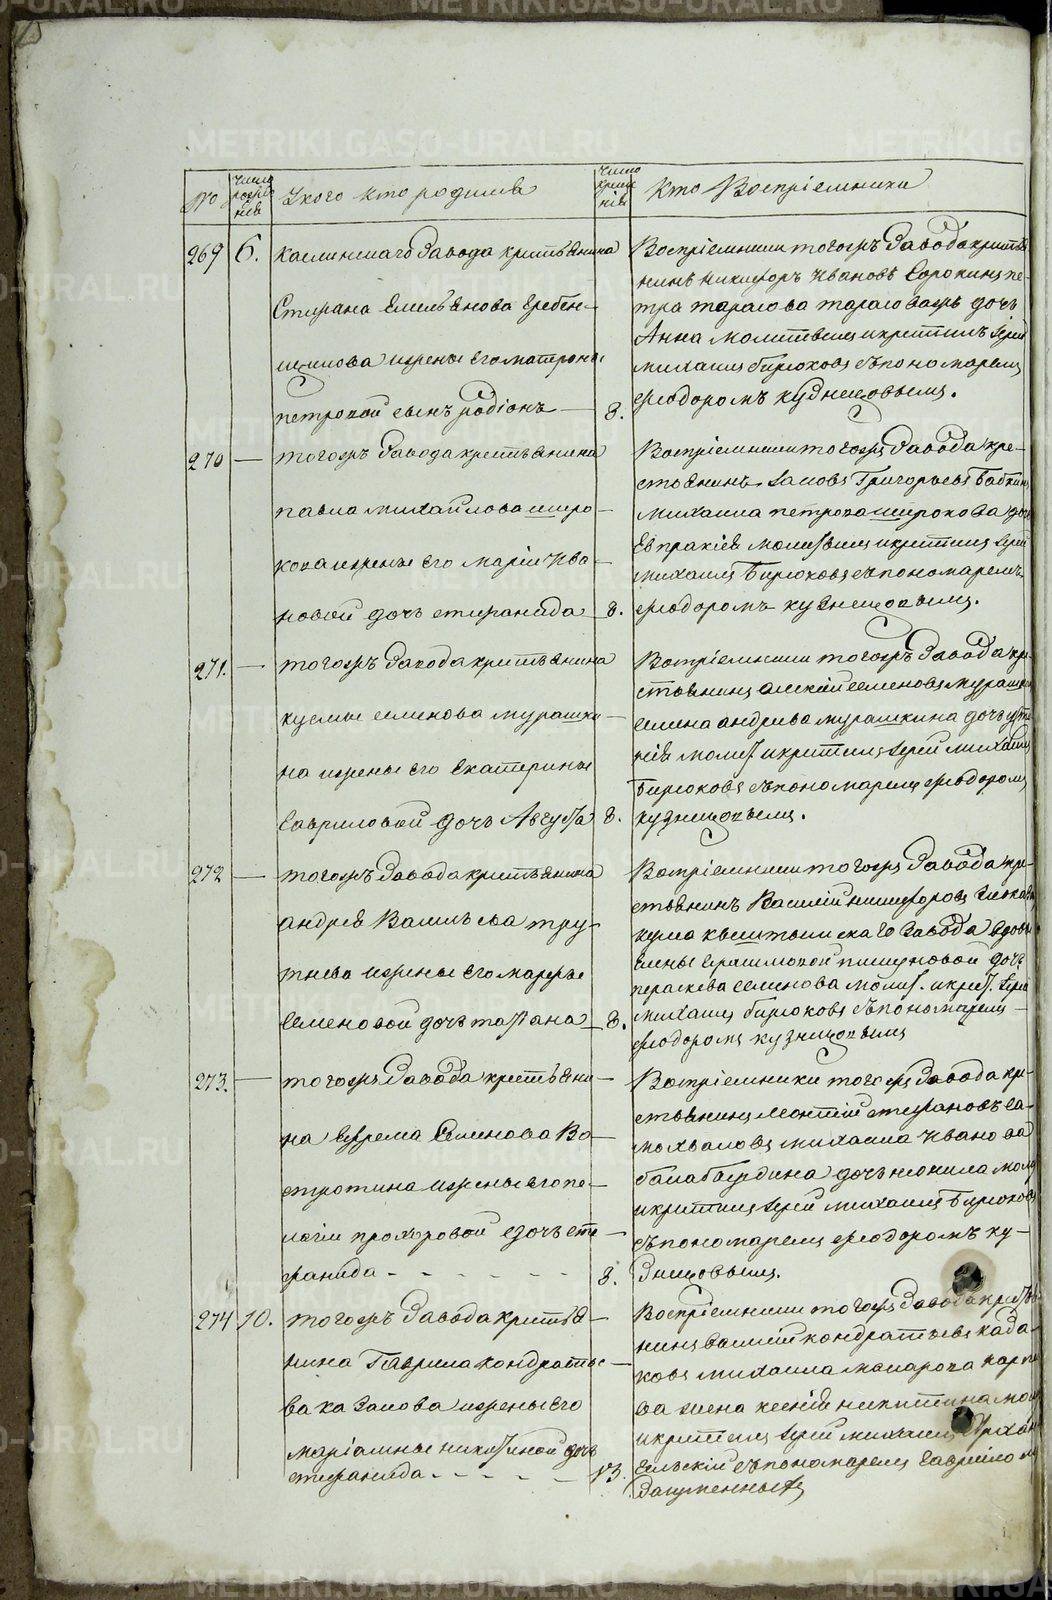 METRIKI.GASO-URAL.RU
№
Число рожде нія
У кого кто родился
Число креще нія
Кто Воспріемники
269 6. Каслинскаго Завода крестьянина
Стефана Емельянова Гребен-
щикова и жены его матроны
петровой сынъ родіонъ — 8.
Воспріемники тогожъ Завода кресть
нинъ Никифоръ Ивановъ Сорокинъ пе-
тра тарасова тарасова жъ дочь
Анна молитвилъ и крестилъ Іерей
михаилъ бирюковъ съ пономаремъ
феодоромъ кузнецовымъ.
270 — тогожъ Завода крестьянина
павла михайлова широ-
кова и жены его маріи Ива-
новой дочь стефанида 8.
Воспріемники тогожъ Завода кре-
стьянинъ Григорьевъ Бабкинъ
михаила петрова широкова дочь
Евпраксія молитвилъ и крестилъ Іерей
михаилъ Бирюковъ съ пономаремъ
феодоромъ кузнецовымъ.
271. — тогожъ Завода крестьянина
кузмы семенова мурашки-
на и жены его Екатерины
Гавриловой дочь Августа 8.
Воспріемники тогожъ Завода кре
стьянинъ алексей семеновъ мурашкин
семена андреева мурашкина дочь
молит. и крестилъ Іерей михаилъ
Бирюковъ съ пономаремъ феодоромъ
кузнецовымъ.
272 — тогожъ Завода крестьянина
андрея Васильева тру-
тнева и жены его марфы
Семеновой дочь татіана 8.
Воспріемники тогожъ Завода кре-
стьянинъ Василій никифоровъ
кыштымскаго Завода вдовы
дочь
параскева семенова молит. и крест. Іерей
михаилъ бирюковъ съ пономаремъ
феодоромъ кузнецовымъ
273. — тогожъ Завода крестьяни-
на Ефрема Семенова Во-
стротина и жены его пе-
лагіи прохоровой дочь сте-
фанида - - - - - 8.
Воспріемники тогожъ Завода кре-
стьянинъ леонтій стефановъ са-
мохваловъ михаила Иванова
балабурдина дочь неонила молит
и крестилъ Іерей михаилъ Бирюковъ
съ пономаремъ феодоромъ ку-
знецовымъ.
274 10. тогожъ Завода крестья-
нина Гаврила кондратье-
ва казакова и жены его
маріамны никитиной дочь
стефанида - - - - - 13.
Воспріемники тогожъ Завода кресть
нинъ Василій кондратьевъ каза-
ковъ михаила макарова карпо
ва жена ксенія никитина мол
и крестилъ Іерей михаилъ Архан
гельскій съ пономаремъ Гаврииломъ